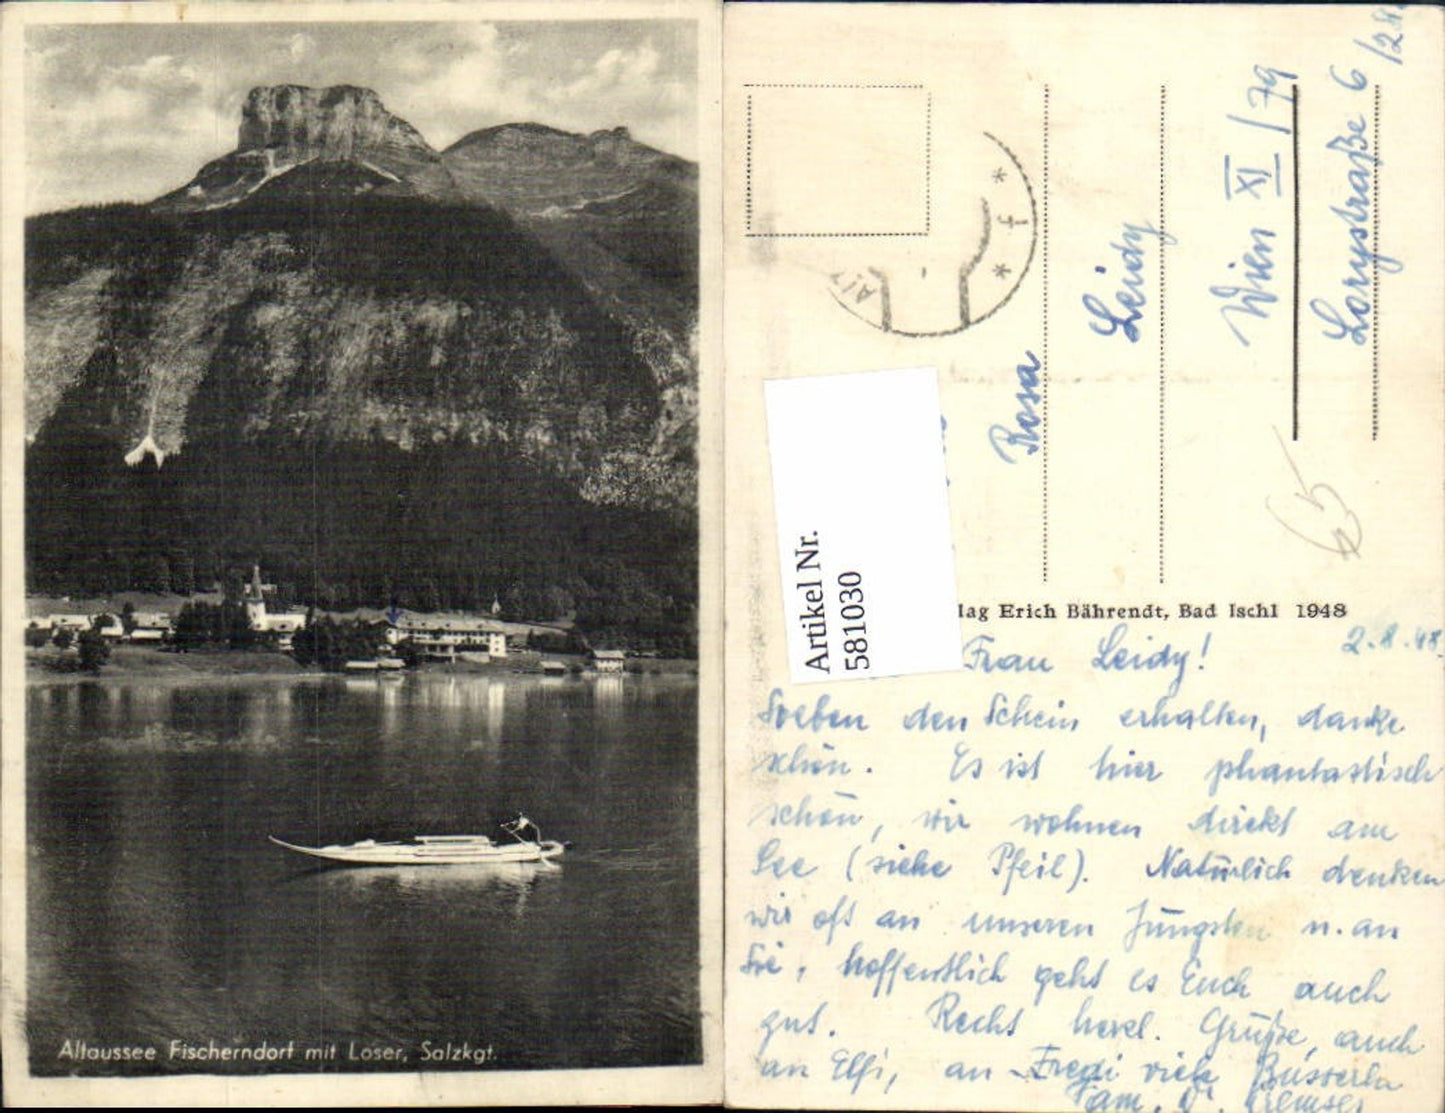 Altaussee Fischerndorf mit Loser, Salzkgt.
Artikel Nr.
581030
lag Erich Bährendt, Bad Ischl 1948
Rosa
Leidy
Wien XI/79
Lorystraße 6
/28
65
f
2.8.48.
Frau Leidy!
Soeben den Schein erhalten, danke
schön. Es ist hier phantastisch
schön, wir wohnen direkt am
See (siehe Pfeil). Natürlich denken
wir oft an unseren Jüngsten u. an
Sie, hoffentlich geht es Euch auch
gut. Recht herzl. Grüße, auch
an Elfi, an Fredi viele Busserln
Fam.